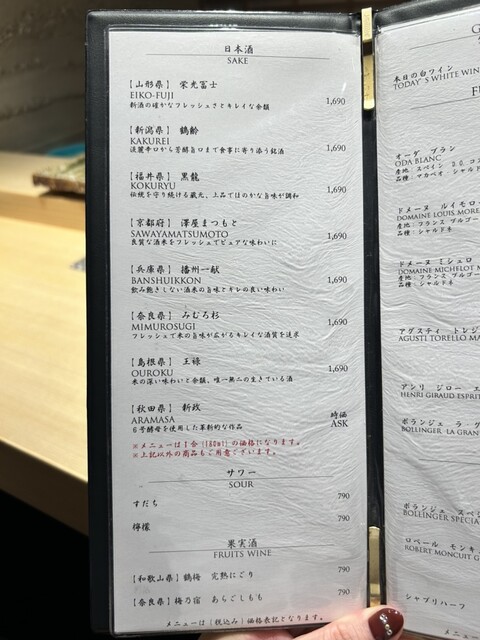 日本酒
SAKE
【山形県】 栄光冨士
EIKO-FUJI
新酒の確かなフレッシュさとキレイな余韻 1,690
【新潟県】 鶴齢
KAKUREI
淡麗辛口から芳醇旨口まで食事に寄り添う銘酒 1,690
【福井県】 黒龍
KOKURYU
伝統を守り続ける蔵元、上品でほのかな旨味が調和 1,690
【京都府】 澤屋まつもと
SAWAYAMATSUMOTO
良質な酒米をフレッシュでピュアな味わいに 1,690
【兵庫県】 播州一献
BANSHUIKKON
飲み飽きしない酒米の旨味とキレの良い味わい 1,690
【奈良県】 みむろ杉
MIMUROSUGI
フレッシュで米の旨味が広がるキレイな酒質を追求 1,690
【島根県】 王祿
OUROKU
米の深い味わいと余韻、唯一無二の生きている酒 1,690
【秋田県】 新政
ARAMASA 時価
6号酵母を使用した革新的な作品 ASK
※メニューは1合(180ml)の価格になります。
※上記以外の商品もご用意ございます。
サワー
SOUR
すだち 790
檸檬 790
果実酒
FRUITS WINE
【和歌山県】鶴梅 完熟にごり 790
【奈良県】梅乃宿 あらごしもも 790
メニューは(税込み)価格表記となります。
G
本日の白ワイン
TODAY'S WHITE WIN
オーダ ブラン
ODA BLANC
産地:スペイン D.O.コス
品種:マカベオ・シャルド
ドメーヌ ルイモロー
DOMAINE LOUIS MORE
産地:フランス ブルゴー
品種:シャルドネ
ドメーヌ ミシュロ
DOMAINE MICHELOT M
産地:フランス ブルゴー
品種:シャルドネ
アグスティ トレジ
AGUSTI TORELLO MA
アンリ ジロー エ
HENRI GIRAUD ESPRIT
ボランジェ ラ・グ
BOLLINGER LA GRAN
ボランジェ スペシ
BOLLINGER SPECIA
ロベール モンキ
ROBERT MONCUIT G
シャブリハーフ